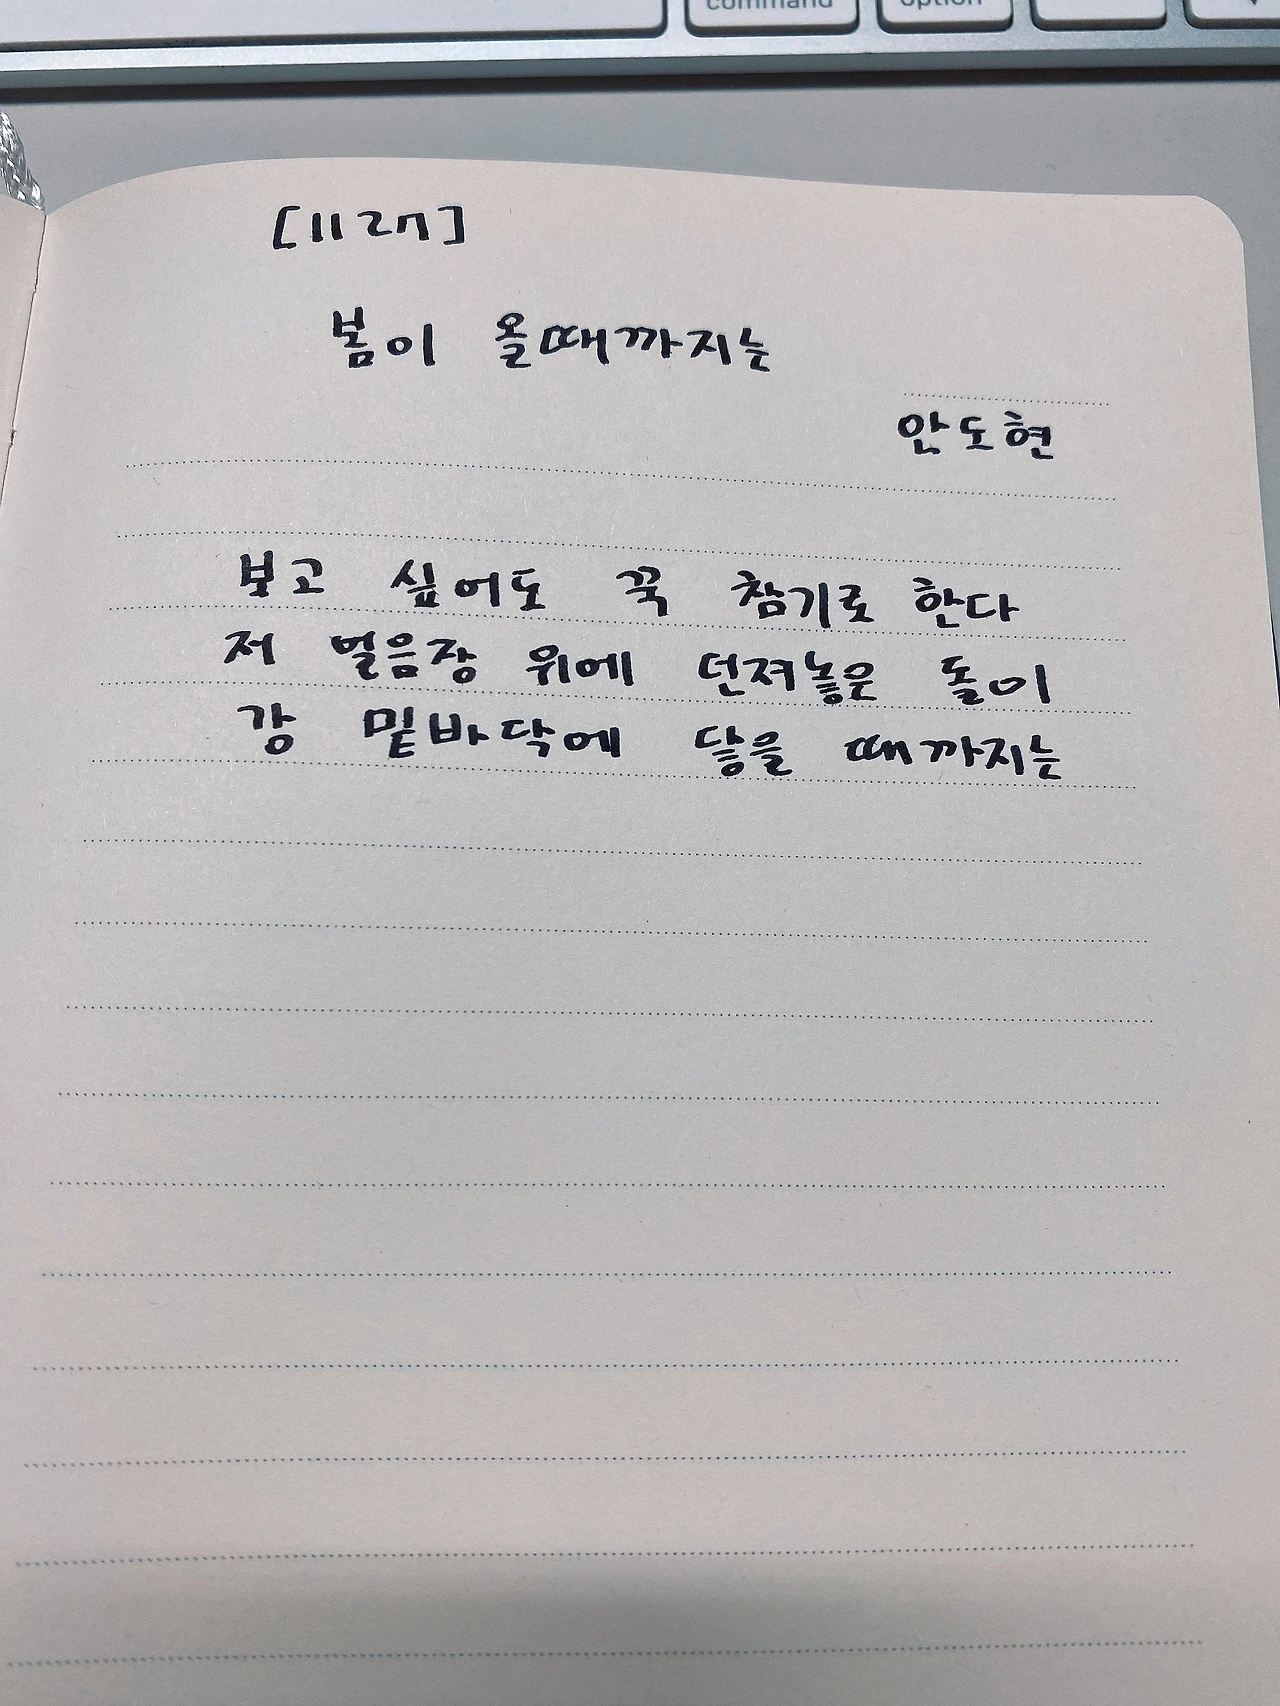 command
option
[1127]
봄이 올때까지는
안도현
보고 싶어도 꾹 참기로 한다
저 얼음장 위에 던져놓은 돌이
강 밑바닥에 닿을 때까지는